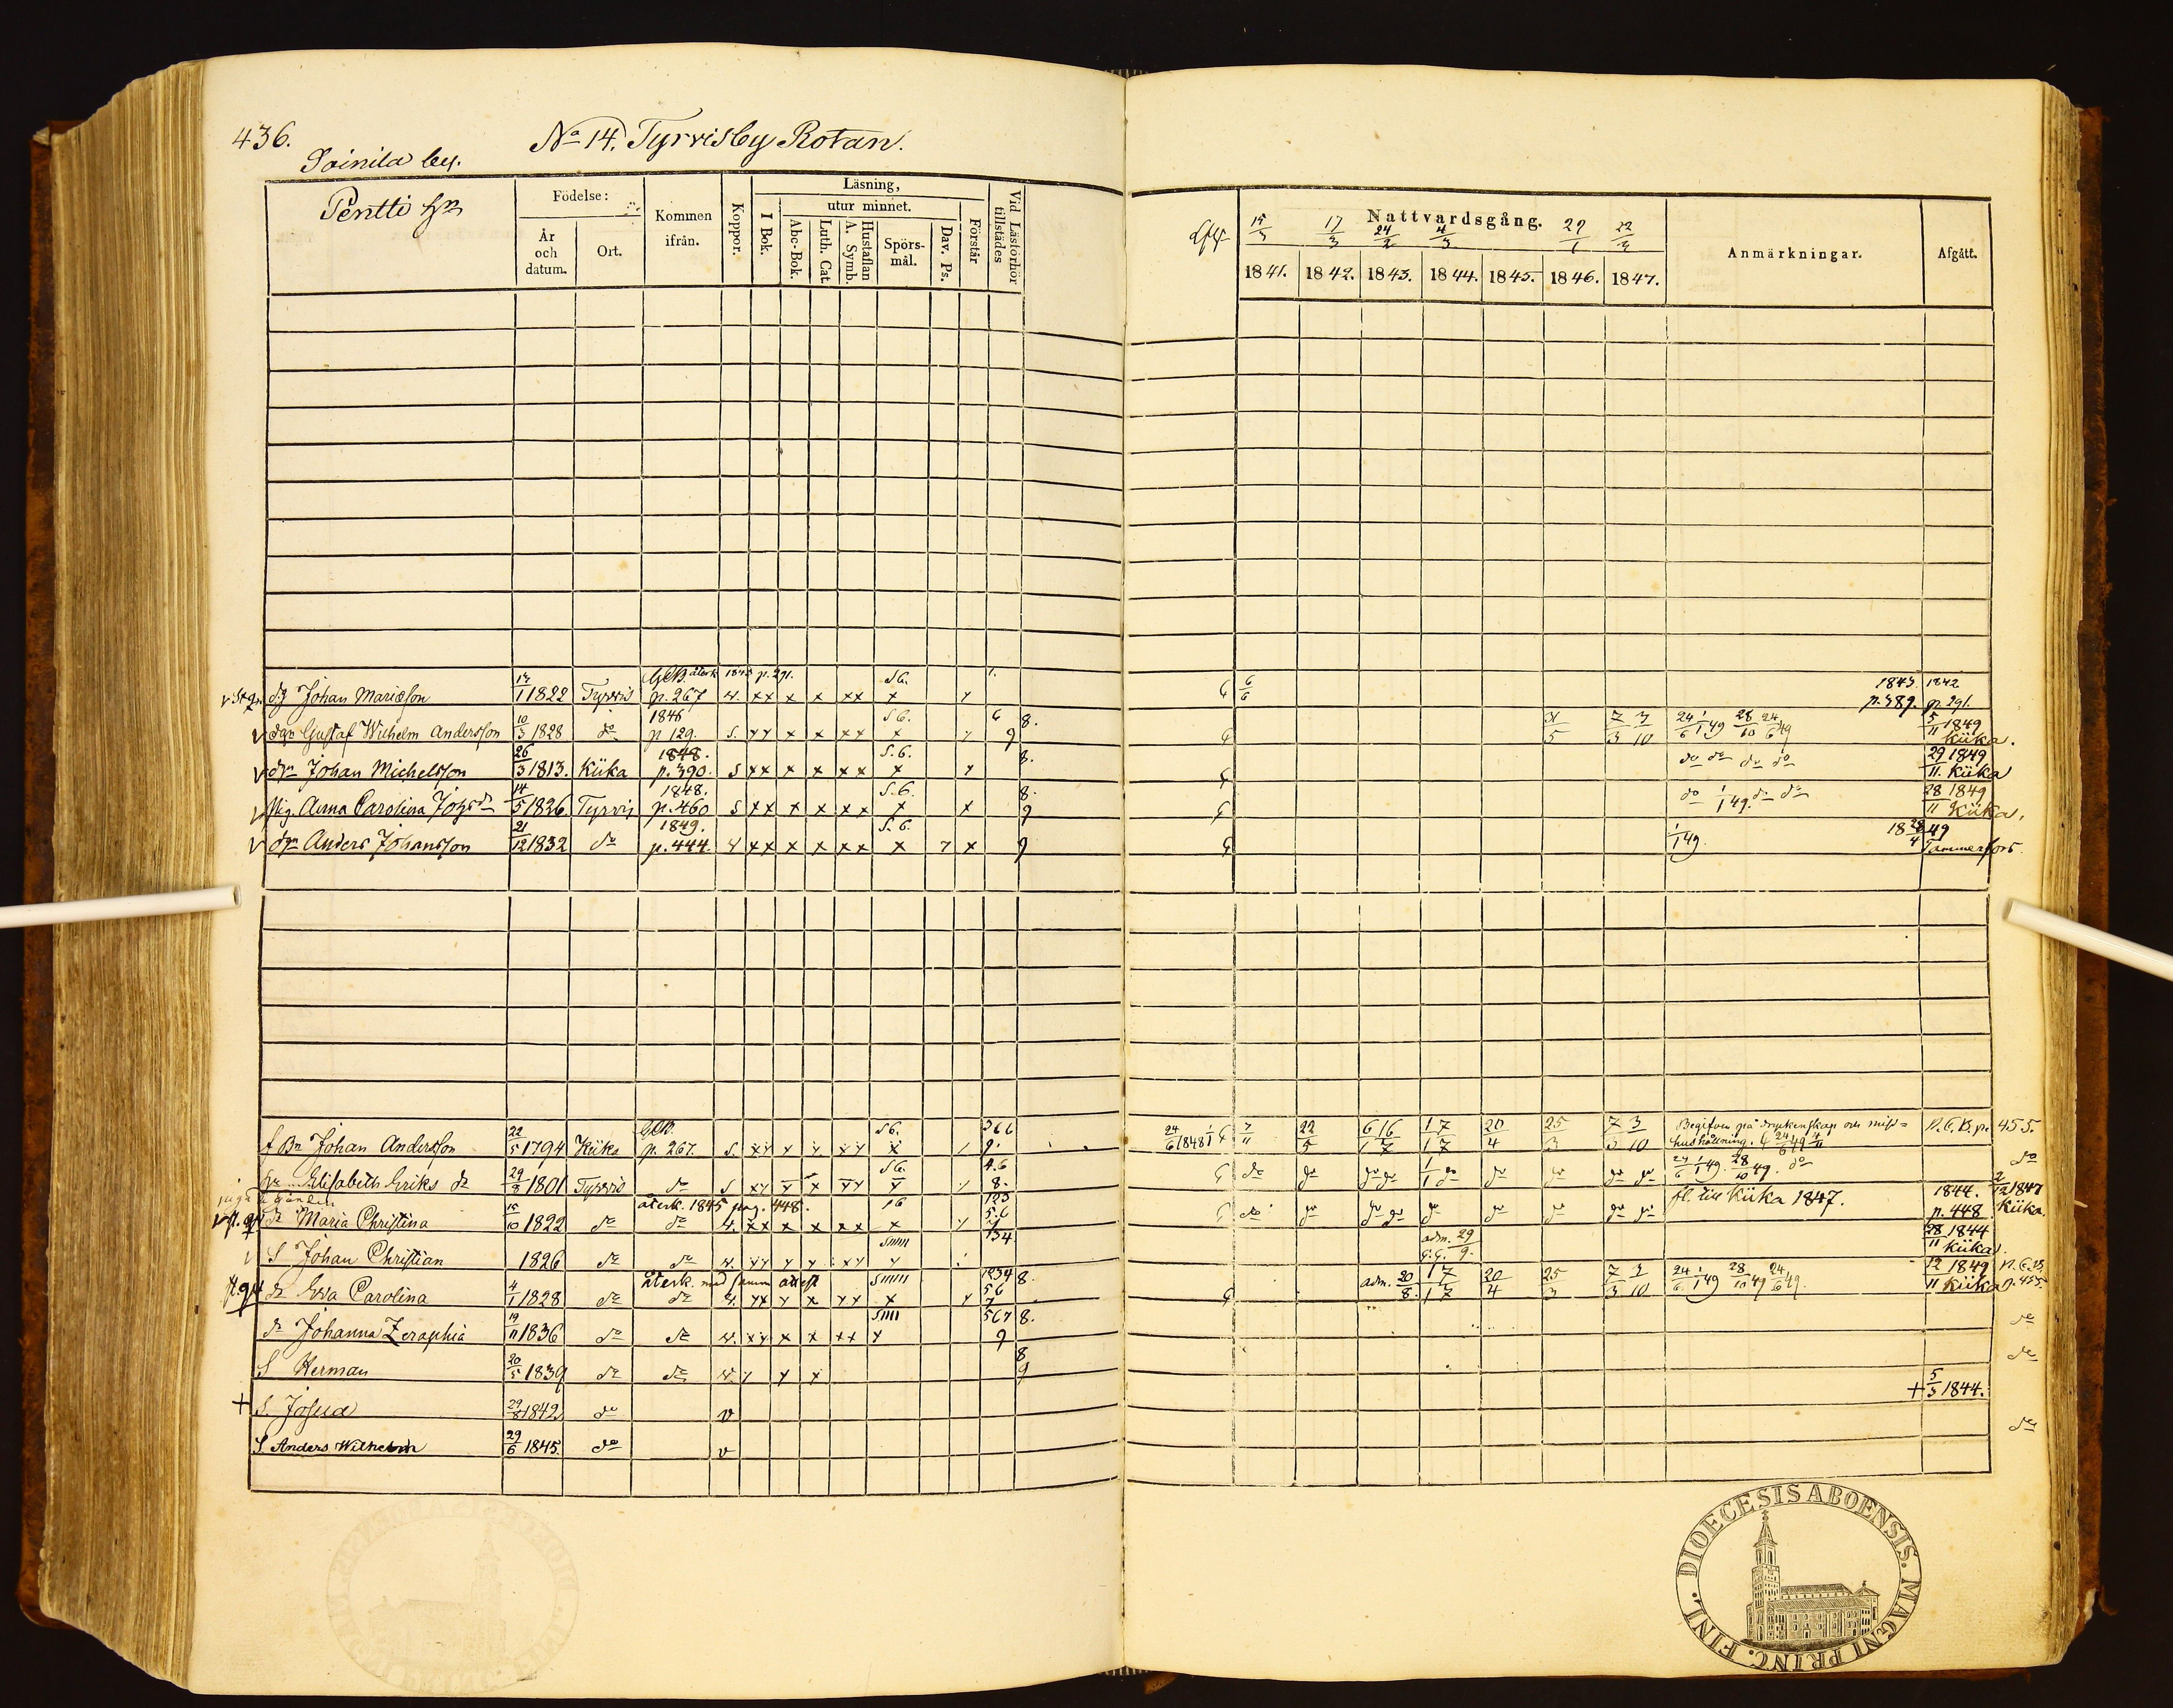 436.
No 14. Tyrvisby Rotan.
Soinila by.
Pentti hn
Födelse:
År och datum.
Ort.
Kommen ifrån.
Koppor.
Läsning,
I Bok.
utur minnet.
Abc-Bok.
Luth. Cat.
Hustaflan A. Symb.
Spörsmål.
Dav. Ps.
Förstår
Vid Läsförhör tillstädes
Nattvardsgång.
15/3 17/3 24/2 4/3 22/3
1841. 1842. 1843. 1844. 1845. 1846. 1847.
Anmärkningar.
Afgått.
Johan Mariæson 1822 Tyrvis p. 267 återk 1843 p. 291. 6/6 1843. p. 389. 1842 p. 291.
Gustaf Wilhelm Andersson 10/3 1828 do 1846 p 129. S. 6 8. 9 7/3 3/10 24/6 1/1 49 28/10 24/6 49 5/11 1849 Kiika.
Johan Michelsson 26/3 1813. Kiika 1848. p. 390. S 8. do do do do 29/11 1849 Kiika
Pig. Anna Carolina 14/5 1826. Tyrvis 1848. p. 460 S 8. 9 do 1/1 49. do do 28/11 1849 Kiika.
Anders Johansson 21/12 1832 do 1849. p. 444. 9 1/1 49. 18 28/4 49 Tammerfors.
Johan Andersson 22/5 1794 Kiika p. 267. S. 366 9. 24/6 1848 7/11 22/5 6/1 16/7 1/1 7/7 20/4 25/3 7/3 3/10 Begifven på dryckenskap och misshushållning. N.C.B. p. 455.
Elisabeth Eriks dr 29/8 1801 Tyrvis do S 4.6 8. do do do do do do do do do 24/6 1/1 49. 28/10 49. do do
Maria Christina 15/10 1822 do do återk. 1845 pag. 448. 123 5.6 7 do do do do do do do do do fl. till Kiika 1847. 1844. p. 448 2/12 1847 Kiika.
S Johan Christian 1826 do do 134 adm. 29/9. 28/11 1844 Kiika.
dr Eva Carolina 4/1 1828 do do återk. med samma attest 1234 56 7 8. adm. 20/8. 1/1 7/7 20/4 25/3 7/3 3/10 24/6 1/1 49 28/10 49 24/6 49. 12/11 1849 Kiika N.C.B. p. 455.
dr Johanna Zeraphia 19/11 1836 do do 567 8. 9 do
S Herman 20/5 1839 do do 8 9 do
+ S. Josua 29/8 1842 do v + 5/3 1844.
S Anders Wilhelm 29/6 1845. do v do
DIOECESIS ABOENSIS. MAGNI PRINC. FINL.